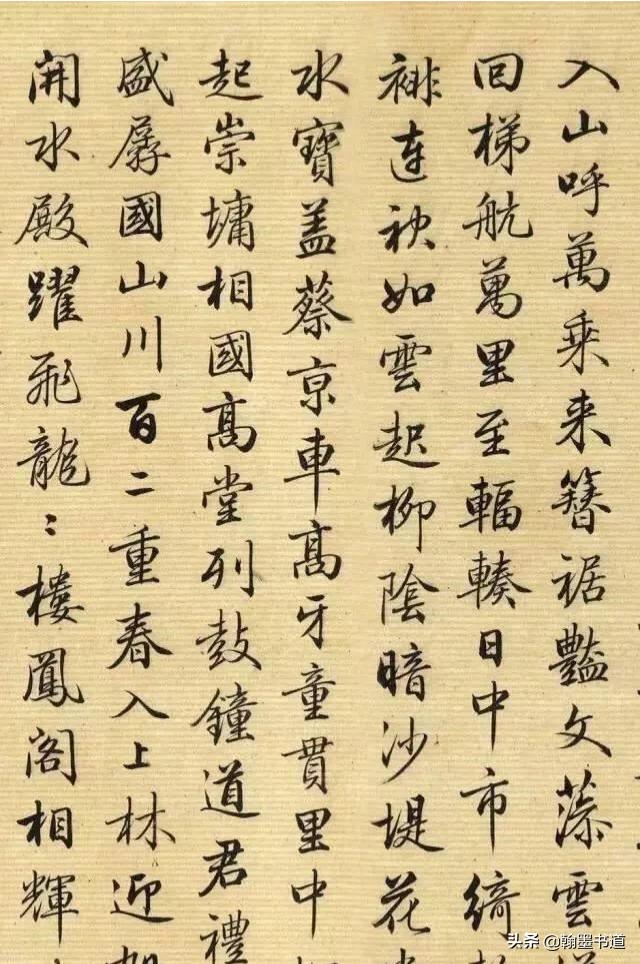 入山呼萬乘来簪裾豔文藻雲
回梯航萬里至輻輳日中市綺
裶連袂如雲起柳陰暗沙堤花
水寶盖蔡京車高牙童貫里中
起崇墉相國高堂列鼓鐘道君禮
盛孱國山川百二重春入上林迎
開水殿躍飛龍〻樓鳳阁相輝
头条 @翰墨书道